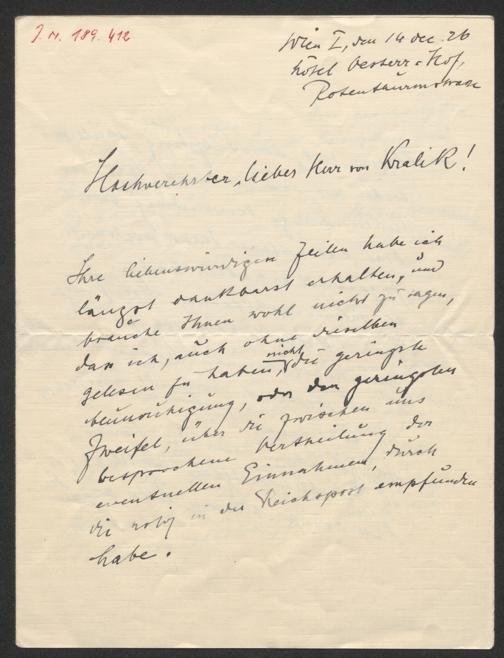 J. N. 189.412
Wien I, den 14 dec. 26
Hôtel Oesterr. Hof,
Rotenthurmstrasse
Hochverehrter, lieber Herr von Kralik!
Ihre liebenswürdigen Zeilen habe ich
längst dankbarst erhalten, und
brauche Ihnen wohl nicht zu sagen,
dass ich, auch ohne dieselben
gelesen zu haben, nicht die geringste
beunruhigung, oder den geringsten
Zweifel, über die zwischen uns
besprochene Vertheilung der
eventuellen Einnahmen, durch
die notiz in der Reichspost empfunden
habe.